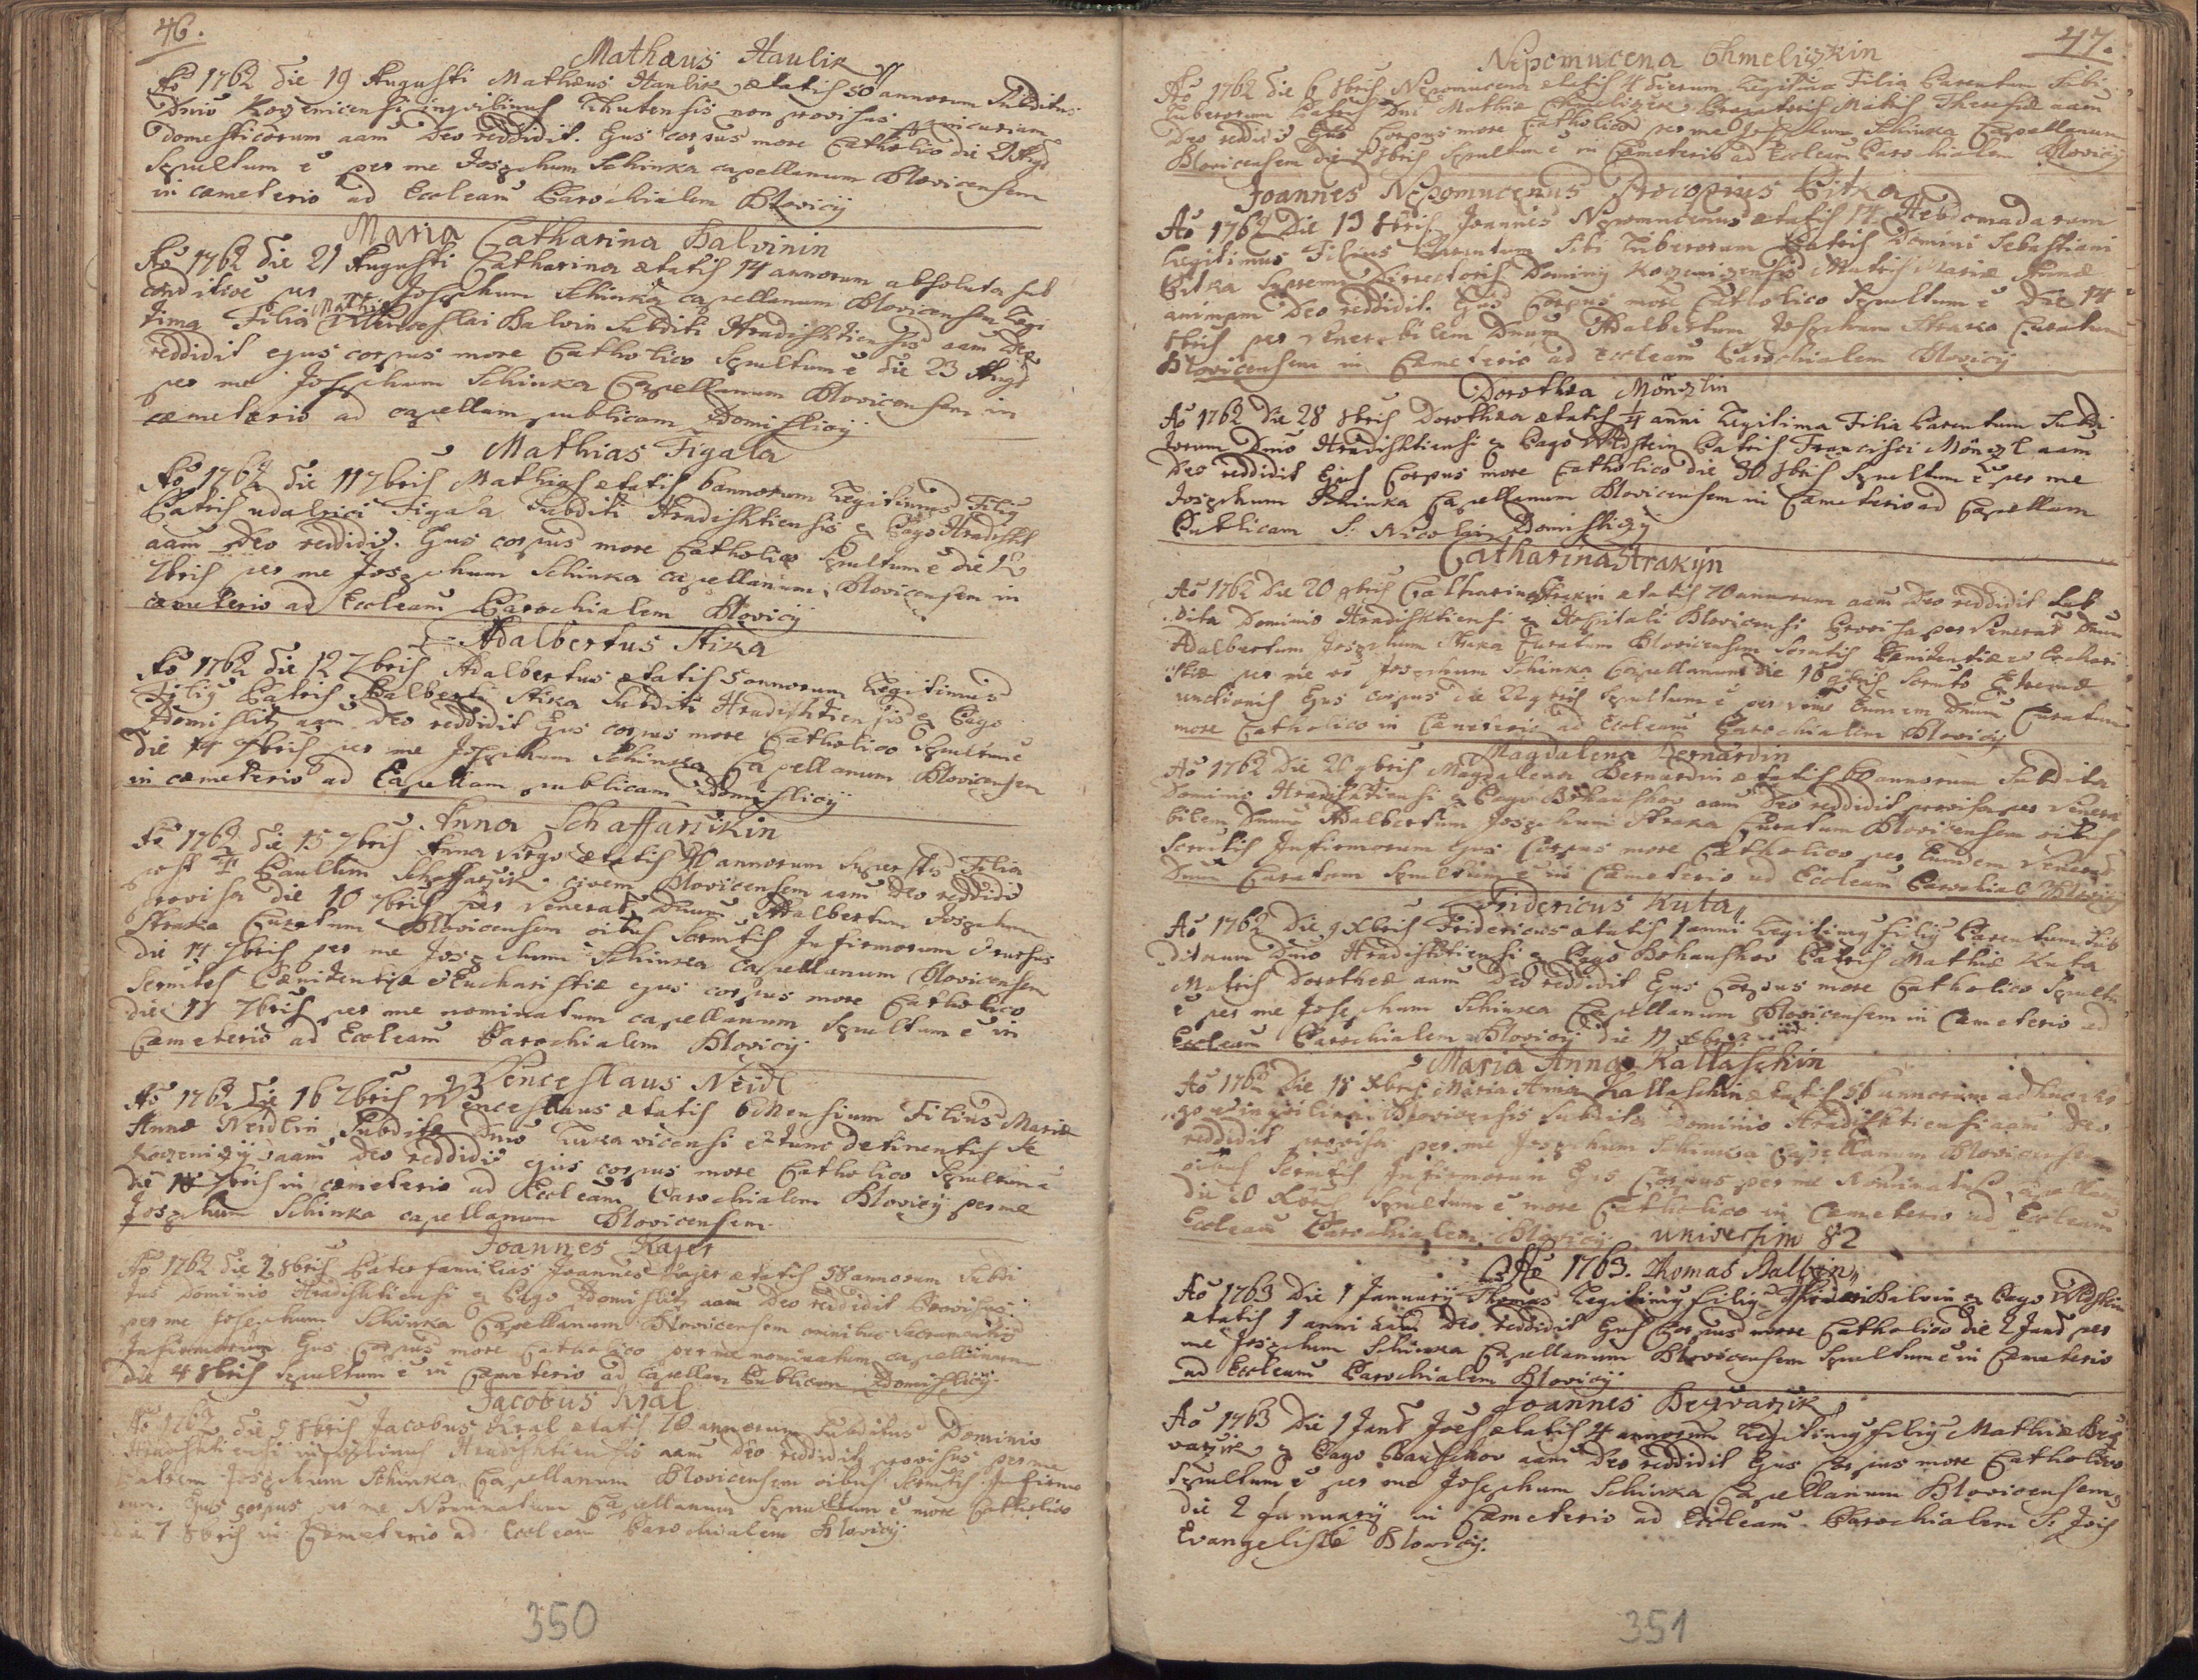 46.
Mathæus Haulik
Ao 1762 die 19 Augusti Mathæus Haulik ætatis 50 annorum Subditus
Dnio Kozenicensi inquilinus non provisus
domesticorum aam Deo reddidit. Ejus corpus more Catholico die 21 Aug
Sepultum e per me Josephum Schinka capellanum Blovicensem
in cæmeterio ad Eccleam Parochialem Blovicij
Maria Catharina Balvinin
Ao 1762 die 21 Augusti Catharina ætatis 14 annorum absoluta sub
conditione per me Josephum Schinka capellanum Blovicensem Legi
tima Filia Mathiæ Wenceslai Balvin Subditi Hradishtiensis aam Deo
reddidit ejus corpus more Catholico Sepultum e die 23 Aug
per me Josephum Schinka Capellanum Blovicensem in
cæmeterio ad capellam publicam Domislicij
Mathias Figala
Ao 1762 die 11 7bris Mathias ætatis 6 annorum Legitimus Filiq
Patris udalrici Figala Subditi Hradishtiensis ex Pago Hradisht
aam Deo reddidit. Ejus corpus more Catholico Sepultum e die 12
7bris per me Josephum Schinka capellanum Blovicensem in
cæmeterio ad Ecoleam Parochialem Blovicij
Adalbertus Stika
Ao 1762 die 12 7bris Adalbertus ætatis 5 annorum Legitimus
Filiq Patris Adalberti Stika Subditi Hradishtiensis ex Pago
Domislitz aam Deo reddidit Ejus corpus more Catholico Sepultum e
die 14 7bris per me Josephum Schinka Capellanum Blovicensem
in cæmeterio ad Capellam publicam Domislicij
Anna Schaffarzikin
Ao 1762 die 15 7bris Anna Virgo ætatis annorum Superstes Filia
post Paullum Schaffarzik civem Blovicensem aam Deo reddidit
provisa die 10 7bris per Venerab Dnum Adalbertum Josephum
Straka Curatum Blovicensem oibus Scrmtis Infirmorum
die 14 7bris per me Josephum Schinka capellanum Blovicensem
Scrmtis Pœnitentiæ Eucharistiæ ejus corpus more Catholico
die 17 7bris per me nominatum capellanum Sepultum e in
Cæmeterio ad Ecoleam Parochialem Blovicij
Wenceslaus Neidl
Ao 1762 die 16 7bris Wenceslaus ætatis 6 Mensium Filius Mariæ
Annæ Neidlin Subditæ Dnio Lukavicensi et tunc detinentis Se
Kozenicij aam Deo reddidit ejus corpus more Catholico Sepultum e
die 18 7bris in cæmeterio ad Ecoleam Parochialem Blovicij per me
Josephum Schinka capellanum Blovicensem
Joannes Kajer
Ao 1762 die 2 8bris Paterfamilias Joannes Kajer ætatis 58 annorum Subdi
tus Dominio Hradishtiensi ex Pago Domislitz aam Deo reddidit Provisus
per me Josephum Schinka Capellanum Blovicensem omnibus Sacramentis
Infirmorum Ejus Corpus more Catholico per me nominatum capellanum
die 4 8bris Sepultum e in Cæmeterio ad Capellam Publicam Domislicij
Jacobus Kral
Ao 1762 die 5 8bris Jacobus Kral ætatis 70 annorum Subditus Dominio
Hradishtiensi inquilinus Hradishtiensis aam Deo reddidit provisus per me
Patrem Josephum Schinka Capellanum Blovicensem oibus Scrmtis Infirmo
rum. Ejus corpus per me Nominatum Capellanum Sepultum e more Catholico
die 7 8bris in Cæmeterio ad Ecoleam Parochialem Blovicij
350
47.
Nepomucena Chmeliczkin
Ao 1762 die 6 8bris Nepomucena ætatis 4 dierum Legitima Filia Parentum Sibi
Liberorum Patris Dni Mathiæ Chmeliczek Matris Theresiæ aam
Deo reddidit Ejus Corpus more Catholico per me Josephum Schinka Capellanum
Blovicensem die 7 8bris Sepultum e in Cæmeterio ad Ecoleam Parochialem Blovicij
Joannes Nepomucenus Procopius Pitka
Ao 1762 Die 13 8bris Joannes Nepomucenus ætatis 14 Hebdomadarum
Legitimus Filius Parentum Sibi Liberorum Patris Domini Sebastiani
Pitka Supremi Directoris Dominij Kozenizensis Matris Mariæ Annæ
animam Deo reddidit. Ejus Corpus more Catholico Sepultum e Die 14
8bris per Venerabilem Dnum Adalbertum Josephum Straka Curatum
Blovicensem in Cæmeterio ad Ecoleam Parochialem Blovicij
Dorothea Mönczlin
Ao 1762 Die 28 8bris Dorothea ætatis 1/4 anni Legitima Filia Parentum Subdi
torum Dnio Hradishtiensi ex Pago Wildstein Patris Francisci Mönczl aam
Deo reddidit Ejus Corpus more Catholico die 30 8bris Sepultum e per me
Josephum Schinka Capellanum Blovicensem in Cæmeterio ad Capellam
Publicam S: Nicolai Domislizij
Catharina Strakyn
Ao 1762 Die 20 9bris Catharina Strakin ætatis 70 annorum aam Deo reddidit Sub
dita Dominio Hradishtiensi ex Hospitali Blovicensi Provisa per Venerab Dnum
Adalbertum Josephum Straka Curatum Blovicensem Scrmtis Pœnitentiæ Euchari
stiæ per me Josephum Schinka Capellanum die 18 9bris Scrmto Extremæ
unctionis Ejus corpus die 22 9bris Sepultum e per Eundem Dnum Curatum
more Catholico in Cæmeterio ad Ecoleam Parochialem Blovicij
Magdalena Bernardin
Ao 1762 Die 26 9bris Magdalena Bernardin ætatis 60 annorum Subdita
Dominio Hradishtiensi ex Pago Bohauskov aam Deo reddidit provisa per Venera
bilem Dnum Adalbertum Josephum Straka Curatum Blovicensem oibus
Scrmtis Infirmorum Ejus Corpus more Catholico per Eundem Venerab
Dnum Curatum Sepultum e in Cæmeterio ad Ecoleam Parochial Blovicij
Fridericus Kuta
Ao 1762 Die 9 Xbris Fridericus ætatis 1 anni Legitimq filiq Parentum Sub
ditorum Dnio Hradishtiensi ex Pago Bohauskov Patris Mathiæ Kuta
Matris Dorotheæ aam Deo reddidit Ejus Corpus more Catholico Sepultu
e per me Josephum Schinka Capellanum Blovicensem in Cæmeterio ad
Ecoleam Parochialem Blovicij die 11 Xbris
Maria Anna Kallaschin
Ao 1762 Die 18 Xbris Maria Anna Kallaschin ætatis 56 annorum adhuc vir
go inquilina Blovicensis Subdita Dominio Hradishtiensi aam Deo
reddidit provisa per me Josephum Schinka Capellanum Blovicensem
oibus Scrmtis Infirmorum Ejus Corpus per me Nominatum Capellanum
die 20 Xbris Sepultum e more Catholico in Cæmeterio ad Ecoleam
Ecoleam Parochialem Blovicij universim 82
Ao 1763. Thomas Balvin
Ao 1763 Die 1 Januarij Thomas Legitimq filiq Balvin ex Pago Wildstein
ætatis 1 anni aam Deo reddidit Ejus Corpus more Catholico die 2 Janu per
me Josephum Schinka Capellanum Blovicensem Sepultum e in Cæmeterio
ad Ecoleam Parochialem Blovicij
Joannes Begvarzik
Ao 1763 Die 1 Janu Joes ætatis 4 annorum Legitimq filiq Mathiæ Beg
varzik ex Pago Bauschov aam Deo reddidit Ejus Corpus more Catholico
Sepultum e per me Josephum Schinka Capellanum Blovicensem
die 2 Januarij in Cæmeterio ad Ecoleam Parochialem S: Jois
Evangelistæ Blovicij.
351